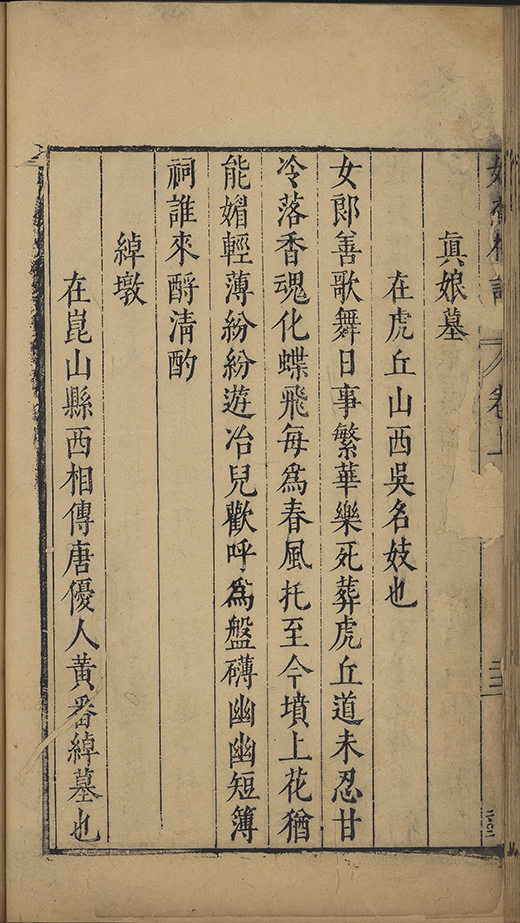 卷上
真娘墓
在虎丘山西吳名妓也
女郎善歌舞日事繁華樂死葬虎丘道未忍甘
冷落香魂化蝶飛每為春風托至今墳上花猶
能媚輕薄紛紛遊冶兒歡呼為盤礴幽幽短簿
祠誰來酹清酌
綽墩
在崑山縣西相傳唐優人黃番綽墓也